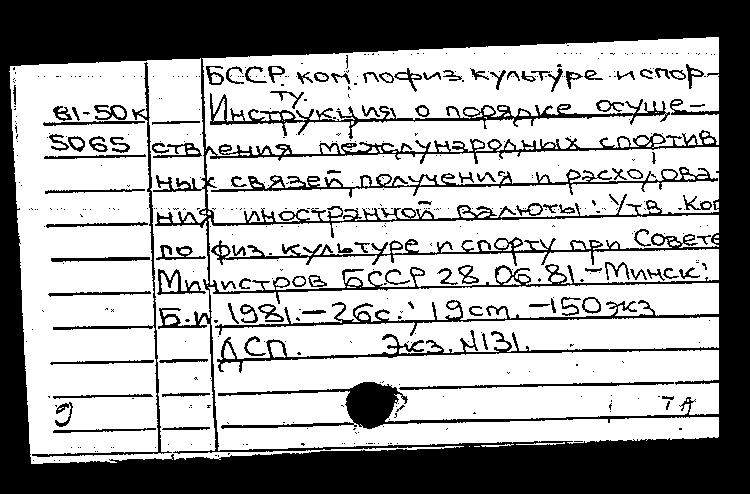 БССР. ком. пофиз. культуре и спор-
ту.
81-50к Инструкция о порядке осуще-
5065 ствления международных спортив
ных связей, получения и расходова-
ния иностранной валюты: Утв. Ком
по физ. культуре и спорту при Совете
Министров БССР 28.06.81.-Минск:
Б.и., 1981.-26с.; 19см. -150экз
ДСП. Экз. №131.
9 7А